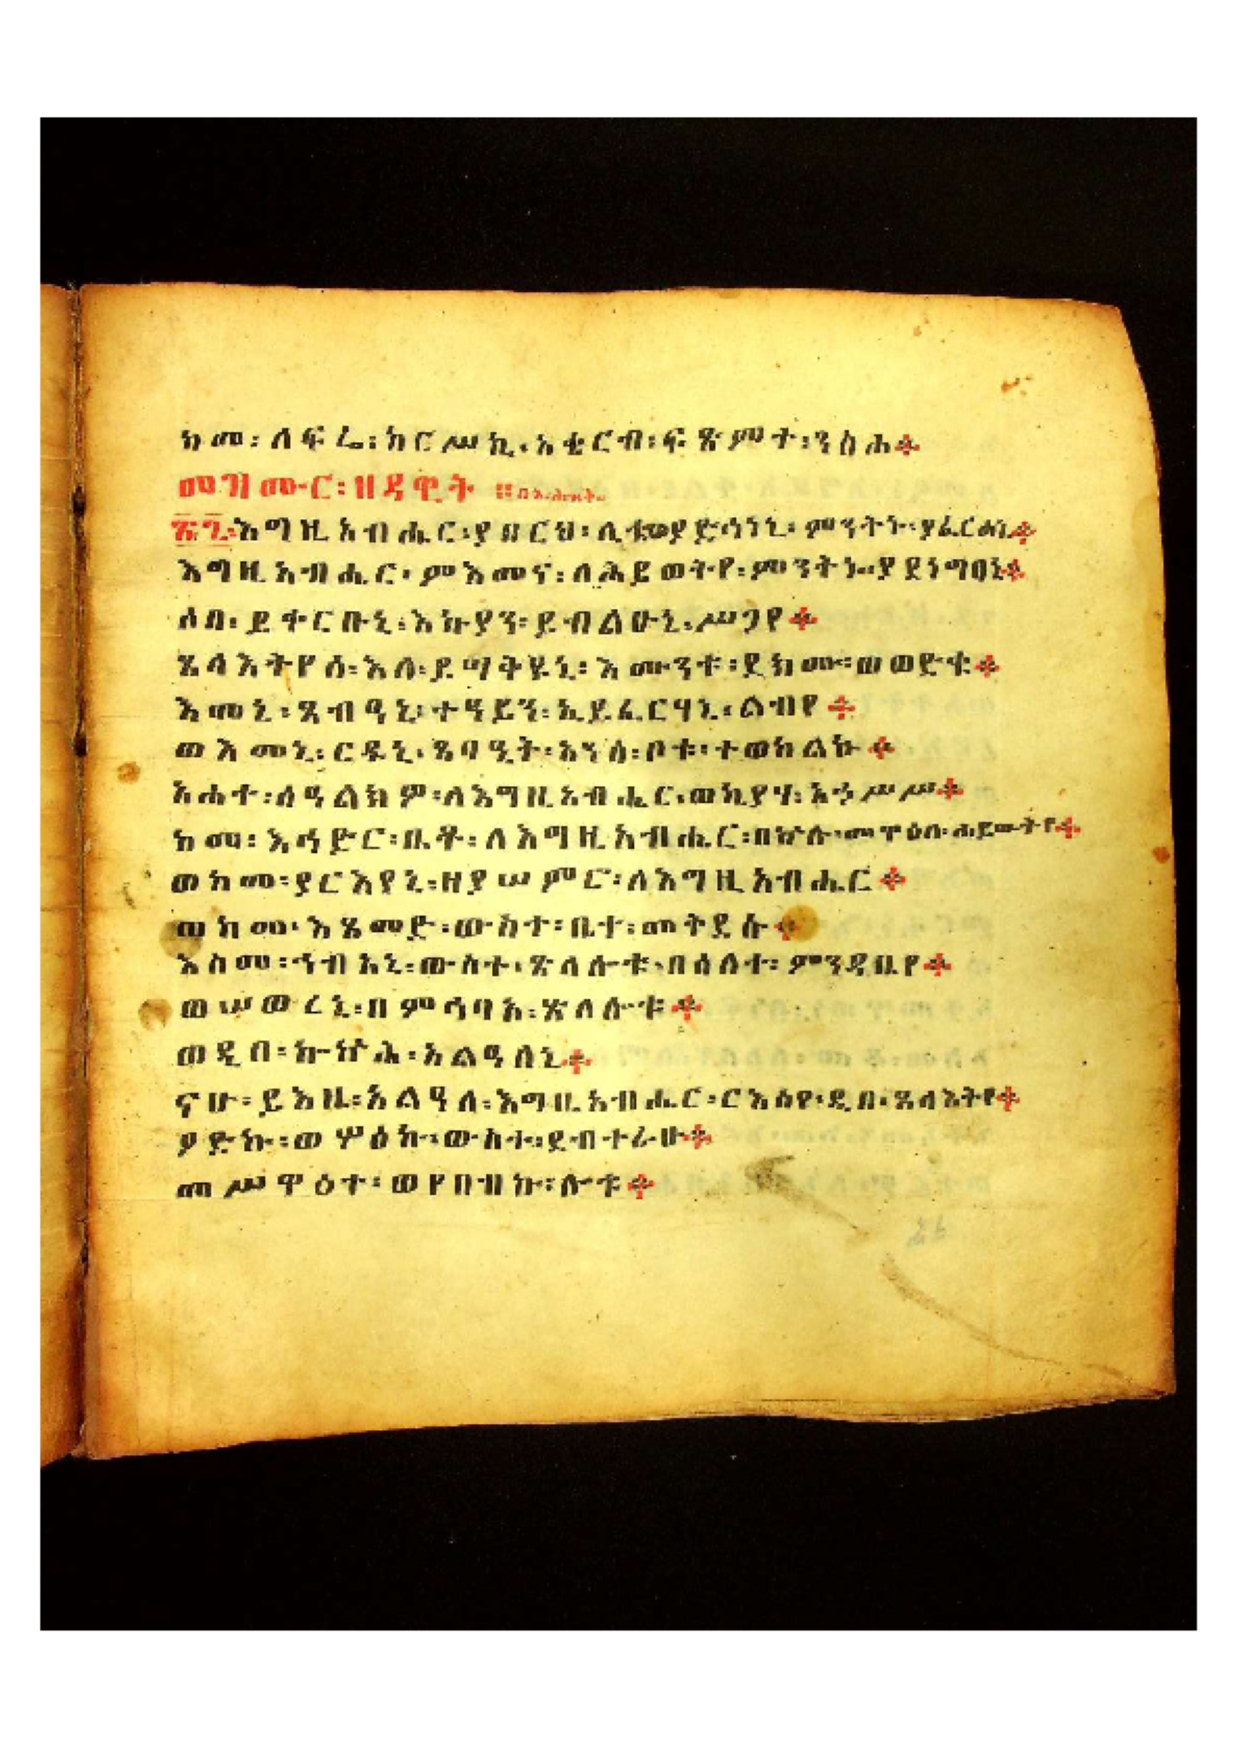 ከመ፡ ለፍሬ፡ ከርሥኪ፡ አቲርብ፡ ፍጽምተ፡ ንስሐ
መዝሙር፡ ዘዳዊት ።
፳፮፡ እግዚአብሔር፡ ያበርህ፡ ሊተ፡ ወያድኅነኒ፡ ምንትኑ፡ ያፈርሀኒ
እግዚአብሔር፡ ምእመና፡ ለሕይወትየ፡ ምንትኑ፡ ያደነግፀኒ
ሶበ፡ ይቀርቡኒ፡ እኩያን፡ ይብልዑኒ፡ ሥጋየ
ጸላእትየሰ፡ እለ፡ ይሣቅዩኒ፡ እሙንቱ፡ ደክሙ፡ ወወድቁ
እመኒ፡ ጸብዓኒ፡ ተዓይን፡ ኢይፈርሃኒ፡ ልብየ
ወእመኒ፡ ርዱኒ፡ ጸባዒት፡ አንሰ፡ ቦቱ፡ ተወከልኩ
አሐተ፡ ሰዓልክዎ፡ ለእግዚአብሔር፡ ወኪያሃ፡ አኃሥሥ
ከመ፡ እኅድር፡ ቤቶ፡ ለእግዚአብሔር፡ በኵሉ፡ መዋዕለ፡ ሕይወትየ
ወከመ፡ ያርእየኒ፡ ዘያሠምሮ፡ ለእግዚአብሔር
ወከመ፡ እጸመድ፡ ውስተ፡ ቤተ፡ መቅደሱ
እስመ፡ ኀብአኒ፡ ውስተ፡ ጽላሎቱ፡ በዕለተ፡ ምንዳቤየ
ወሠወረኒ፡ በምኅባአ፡ ጽላሎቱ
ወዲበ፡ ኰኵሕ፡ አልዓለኒ
ናሁ፡ ይእዜ፡ አልዓለ፡ እግዚአብሔር፡ ርእስየ፡ ዲበ፡ ጸላእትየ
ዖድኩ፡ ወሦዕኩ፡ ውስተ፡ ደብተራሁ
መሥዋዕተ፡ ወየበብኩ፡ ሎቱ